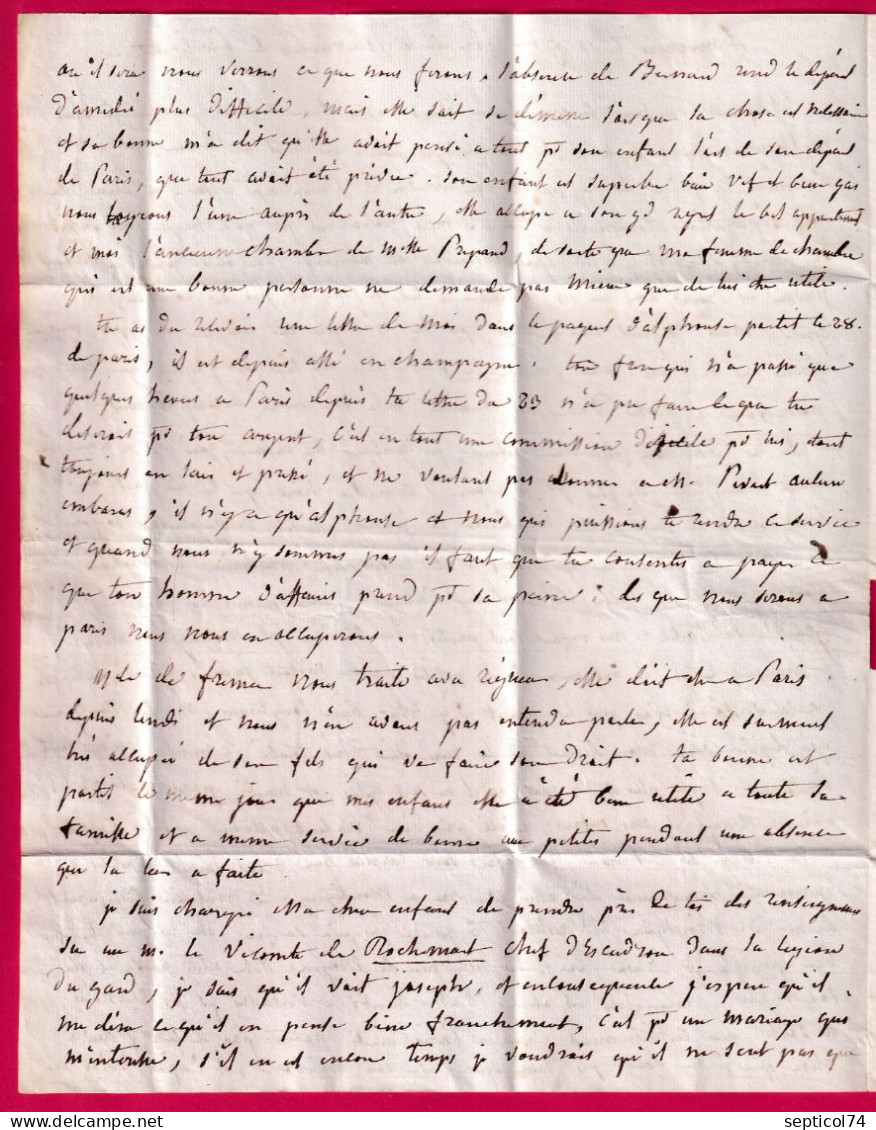 où il sera nous verrons ce que nous ferons. l'absence de Bernard rend le départ
d'amélie plus difficile, mais elle sait se démener lorsque la chose est nécessaire
et sa bonne m'a dit qu'elle avait pensé a tout pr son enfant lors de son départ
de Paris, que tout avait été prévu. son enfant est superbe bien vif et bien gai
nous logeons l'une auprès de l'autre, elle occupe a son gd regret le bel appartement
et moi l'ancienne chambre de melle, de sorte que ma femme de chambre
qui est une bonne personne ne demande pas mieux que de lui être utile.
tu as du recevoir une lettre de moi dans le paquet d'alphonse partit le 28.
de paris, il est depuis allé en champagne. ton frere qui n'a passé que
quelques heures a Paris depuis ta lettre du 23 n'a pu faire ce que tu
desirois pr ton argent, c'est en tout une commission difficile pr lui, etant
toujours en lair et pressé, et ne voulant pas donner a M. aucun
embaras, il n'y a qu'alphonse et nous qui puissions te rendre ce service
et quand nous n'y sommes pas il faut que tu consentes a payer ce
que ton homme d'affaires prend pr sa peine; des que nous serons a
paris nous nous en occuperons.
de nous traite avec rigueur, elle doit etre a Paris
depuis lundi et nous n'en avons pas entendu parler, elle est surement
très occupée de son fils qui va faire son Droit. ta bonne est
partie le meme jour que mes enfans elle a été bien utile a toute la
famille et a meme servie de bonne aux petites pendant une absence
que la leur a faite.
je suis chargée ma chere enfant de prendre près de toi des renseignemens
sur un m. le Vicomte de Rochemont chef d'Escadron dans la legion
du gard, je sais qu'il voit joseph, et enconsequence j'espere qu'il
me dira ce qu'il en pense bien franchement, c'est pr un mariage qui
m'interesse, s'il en est encore temps je voudrais qu'il ne sent pas que
delcampe.net
septicol74